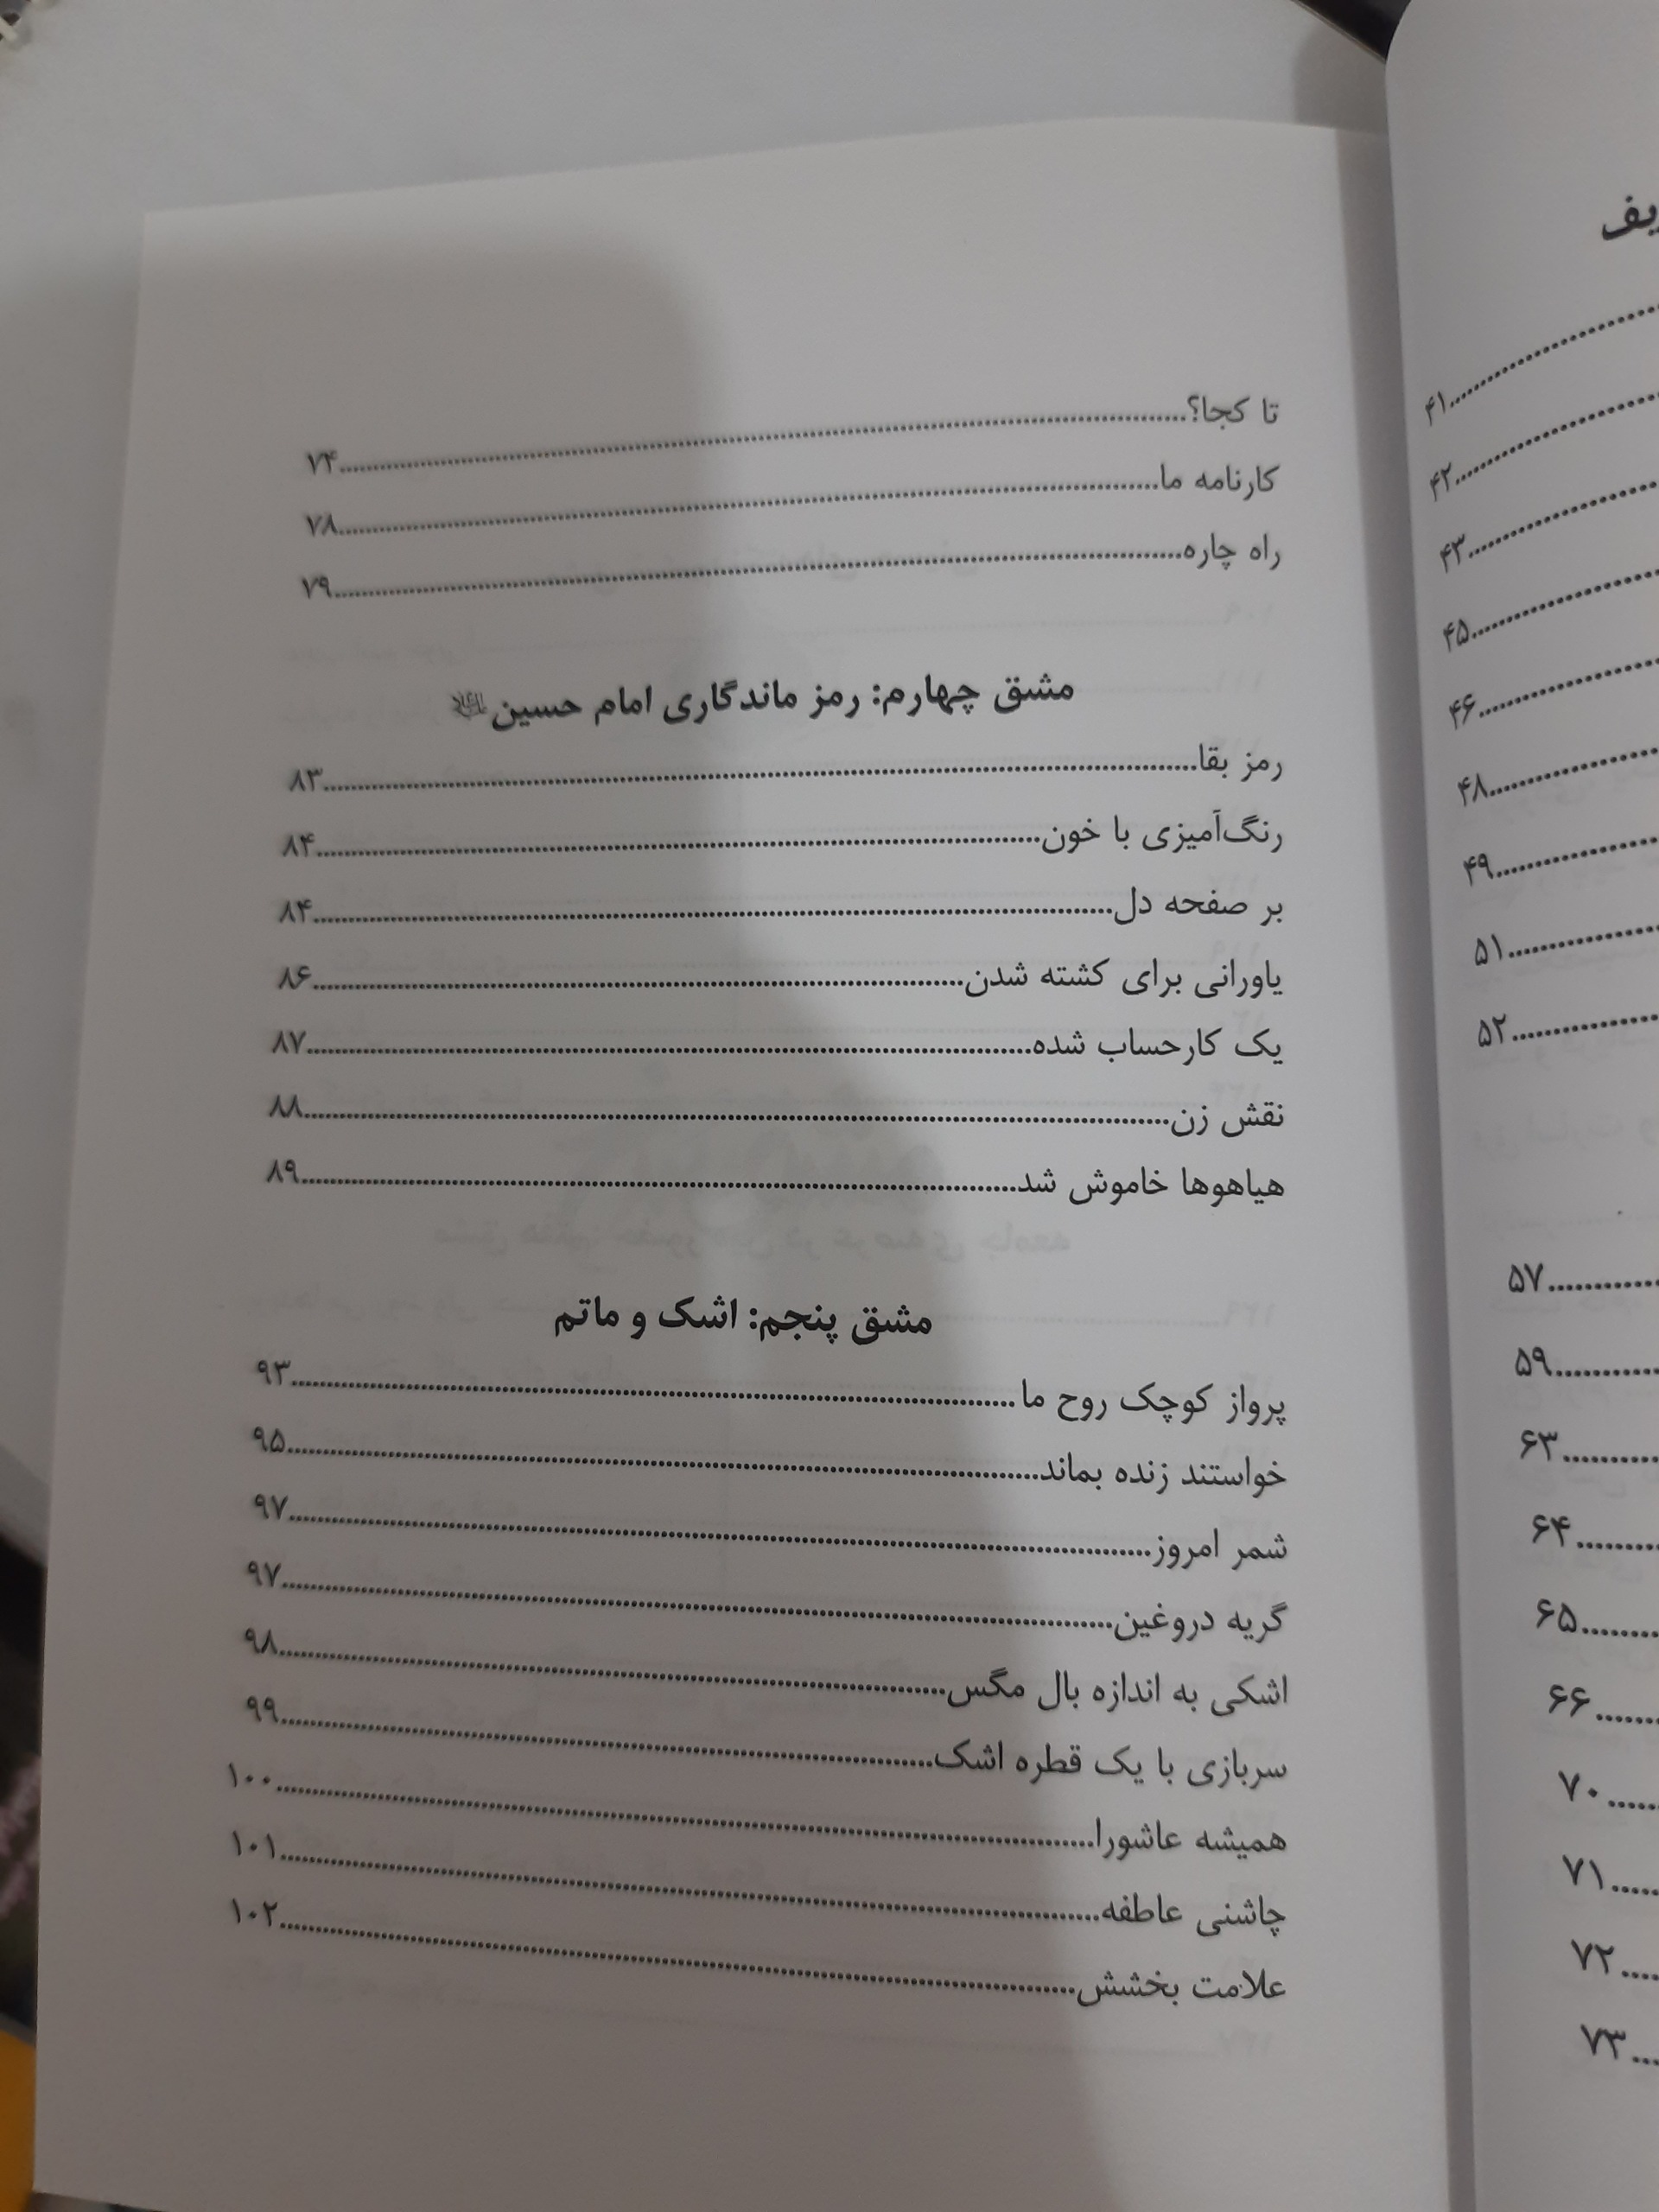 یف
۴۱
۴۲
۴۳
۴۵
۴۶
۴۸
۴۹
۵۱
۵۲
۵۷
۵۹
۶۳
۶۴
۶۵
۶۶
۷۰
۷۱
۷۲
۷۳
تا کجا؟ ۷۴
کارنامه ما ۷۸
راه چاره ۷۹
مشق چهارم: رمز ماندگاری امام حسین
رمز بقا ۸۳
رنگ‌آمیزی با خون ۸۴
بر صفحه دل ۸۴
یاورانی برای کشته شدن ۸۶
یک کارحساب شده ۸۷
نقش زن ۸۸
هیاهوها خاموش شد ۸۹
مشق پنجم: اشک و ماتم
پرواز کوچک روح ما ۹۳
خواستند زنده بماند ۹۵
شمر امروز ۹۷
گریه دروغین ۹۷
اشکی به اندازه بال مگس ۹۸
سربازی با یک قطره اشک ۹۹
همیشه عاشورا ۱۰۰
چاشنی عاطفه ۱۰۱
علامت بخشش ۱۰۲